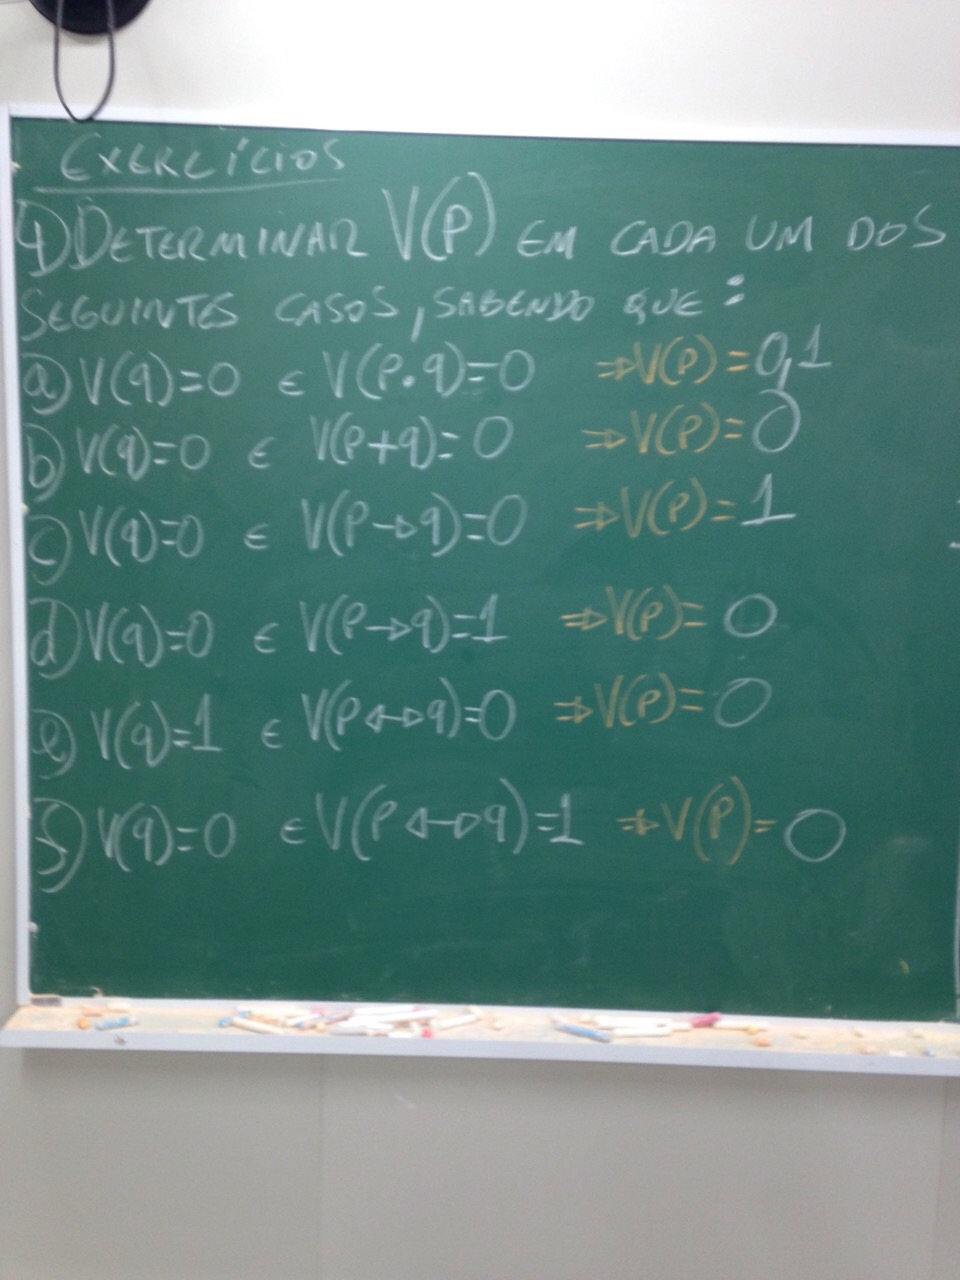 EXERCÍCIOS
1) DETERMINAR V(P) EM CADA UM DOS
SEGUINTES CASOS, SABENDO QUE:
a) V(q)=0 E V(P.q)=0 ⇒V(P)=0,1
b) V(q)=0 E V(P+q)=0 ⇒V(P)=0
c) V(q)=0 E V(P→q)=0 ⇒V(P)=1
d) V(q)=0 E V(P→q)=1 ⇒V(P)=0
e) V(q)=1 E V(P↔q)=0 ⇒V(P)=0
f) V(q)=0 E V(P↔q)=1 ⇒V(P)=0